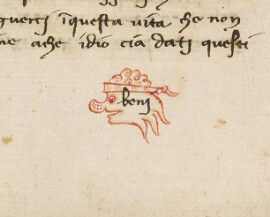 guerci i questa uita che non
ne ache idio cia dati questi
beni